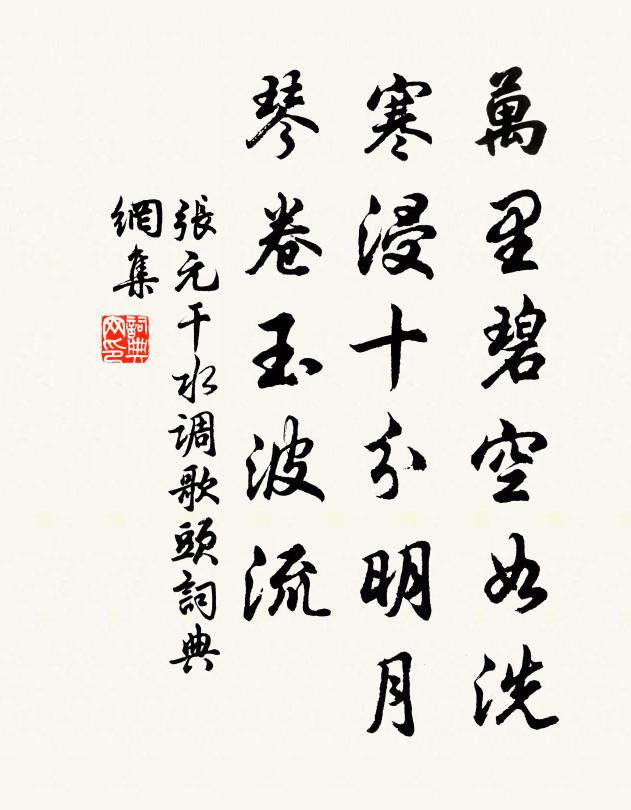 萬里碧空如洗
寒浸十分明月
琴卷玉波流
張元干水调歌頭詞典
網集
詞典
网印